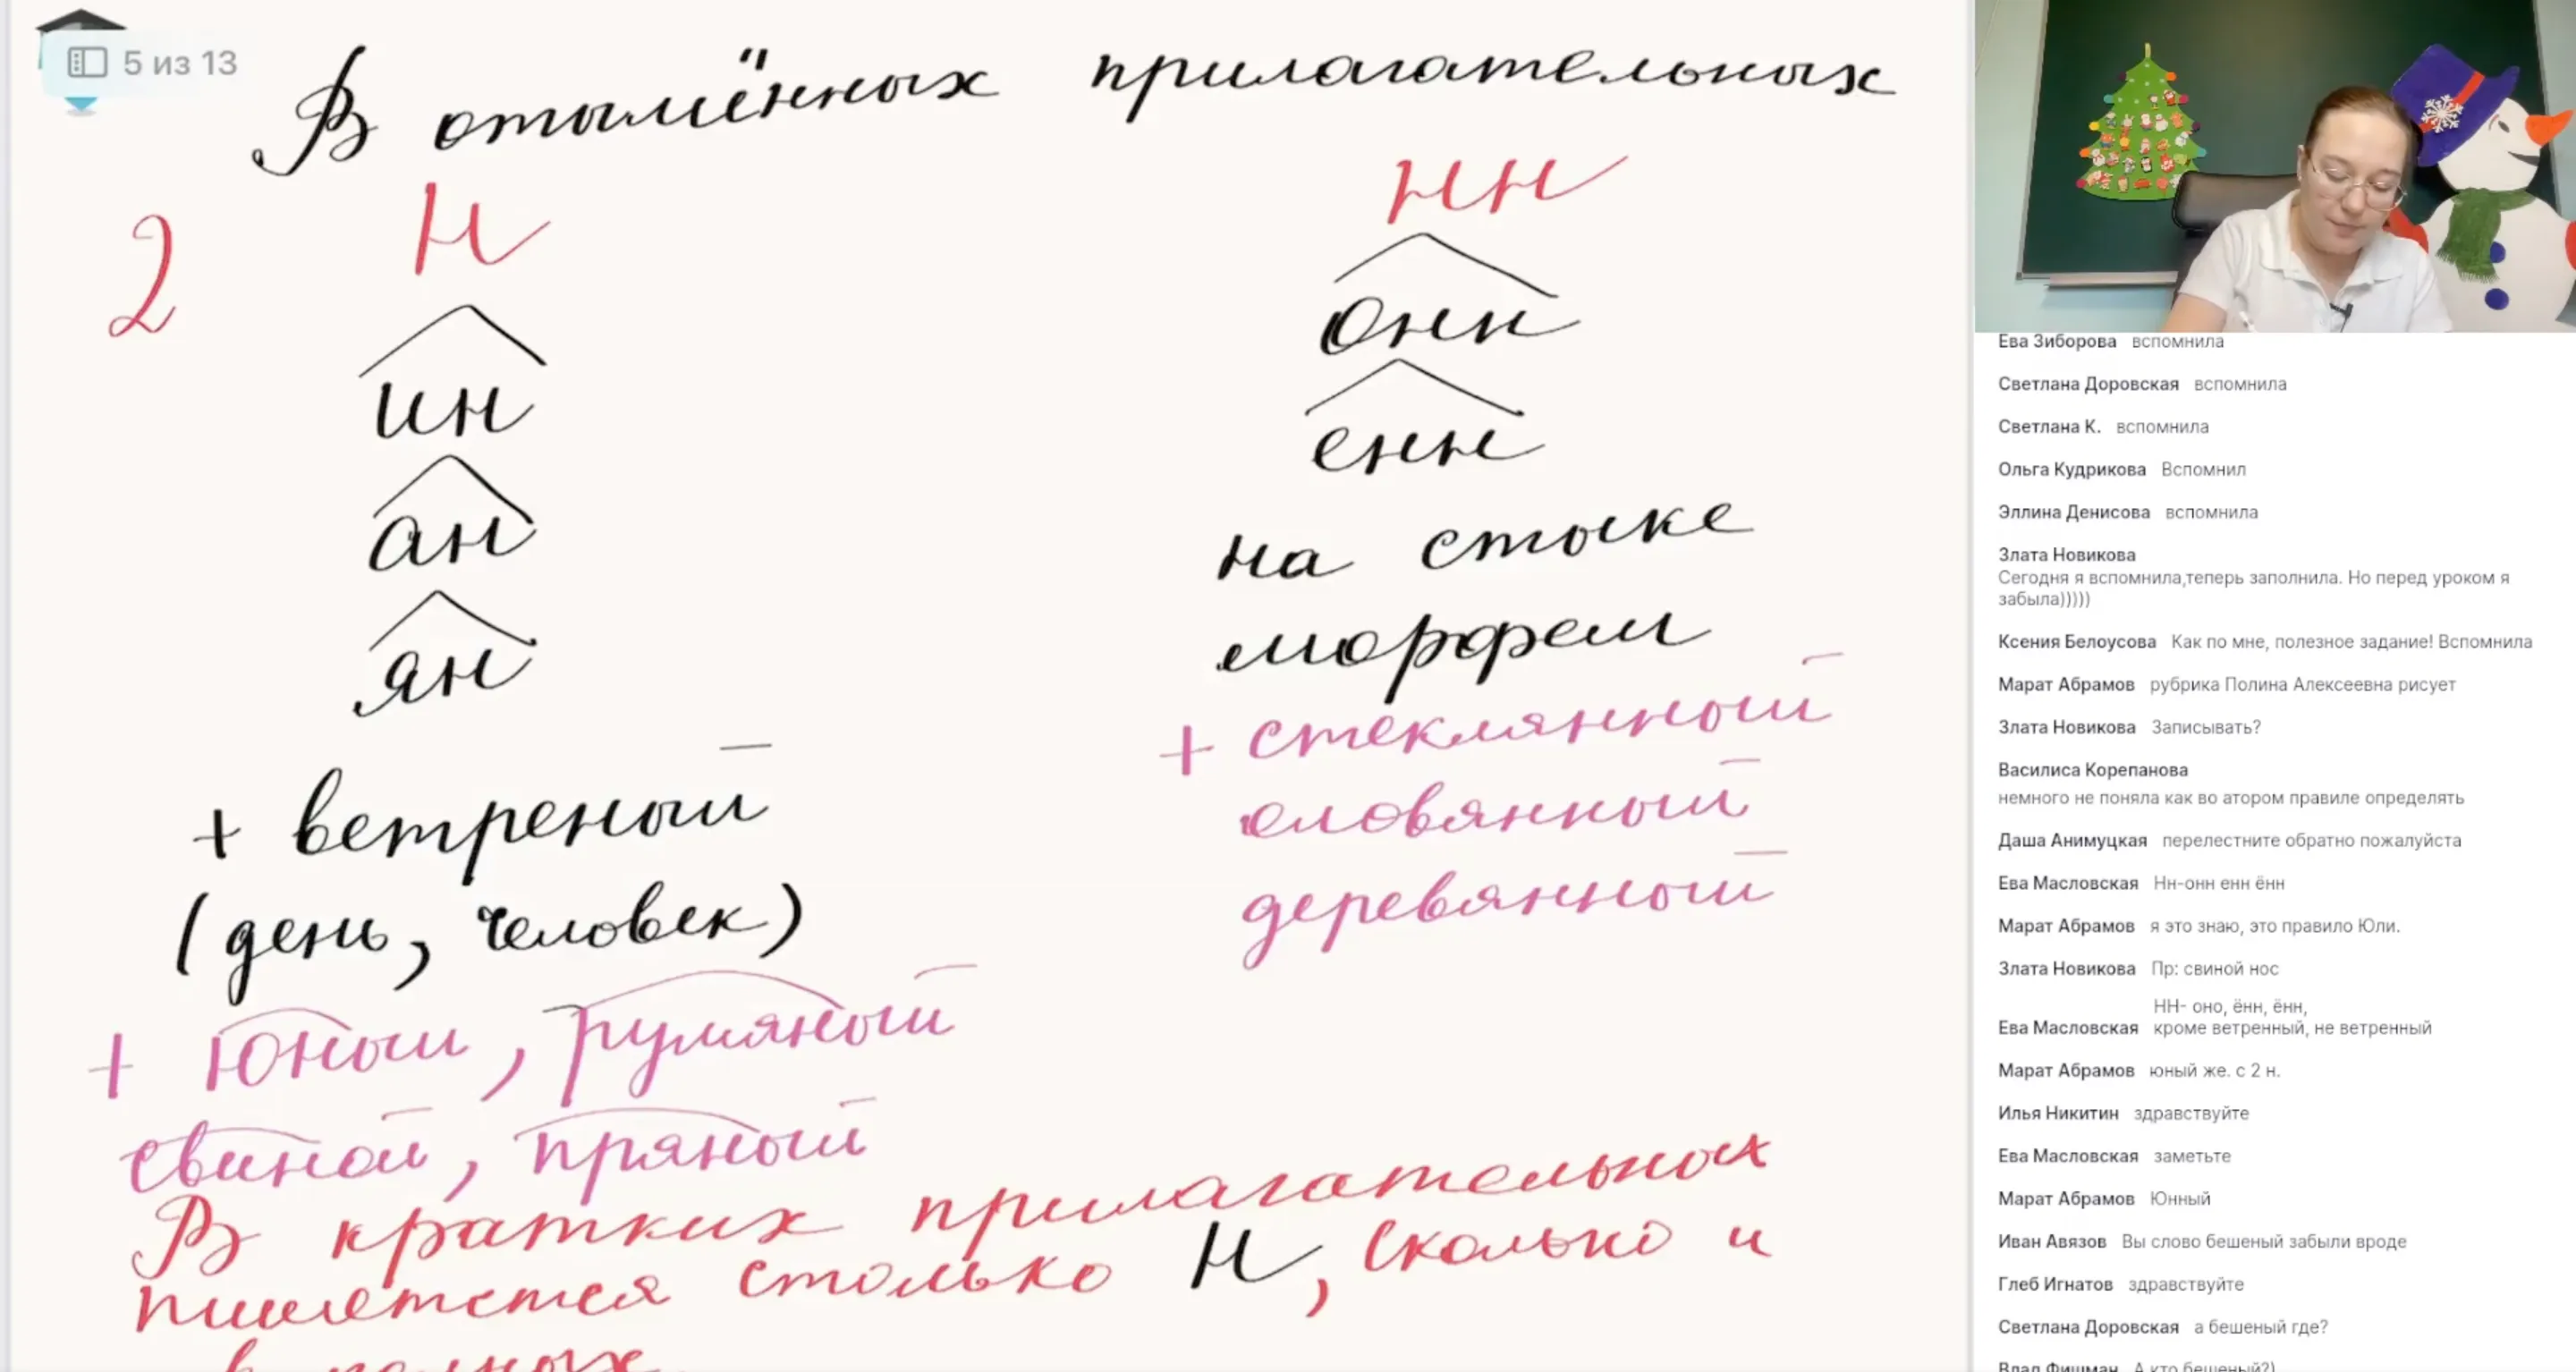 5 из 13
В отымённых прилагательных
2 Н НН
ин онн
ан енн
ян на стыке
морфем
+ ветреный + стеклянный
(день, человек) оловянный
деревянный
+ юный, румяный
свиной, пряный
В кратких прилагательных
пишется столько Н, сколько и
в полных
Ева Зиборова вспомнила
Светлана Доровская вспомнила
Светлана К. вспомнила
Ольга Кудрикова Вспомнил
Эллина Денисова вспомнила
Злата Новикова
Сегодня я вспомнила,теперь заполнила. Но перед уроком я
забыла)))))
Ксения Белоусова Как по мне, полезное задание! Вспомнила
Марат Абрамов рубрика Полина Алексеевна рисует
Злата Новикова Записывать?
Василиса Корепанова
немного не поняла как во атором правиле определять
Даша Анимуцкая перелестните обратно пожалуйста
Ева Масловская Нн-онн енн ённ
Марат Абрамов я это знаю, это правило Юли.
Злата Новикова Пр: свиной нос
НН- оно, ённ, ённ,
Ева Масловская кроме ветренный, не ветренный
Марат Абрамов юный же. с 2 н.
Илья Никитин здравствуйте
Ева Масловская заметьте
Марат Абрамов Юнный
Иван Авязов Вы слово бешеный забыли вроде
Глеб Игнатов здравствуйте
Светлана Доровская а бешеный где?
Влад Фишман А кто бешеный?)